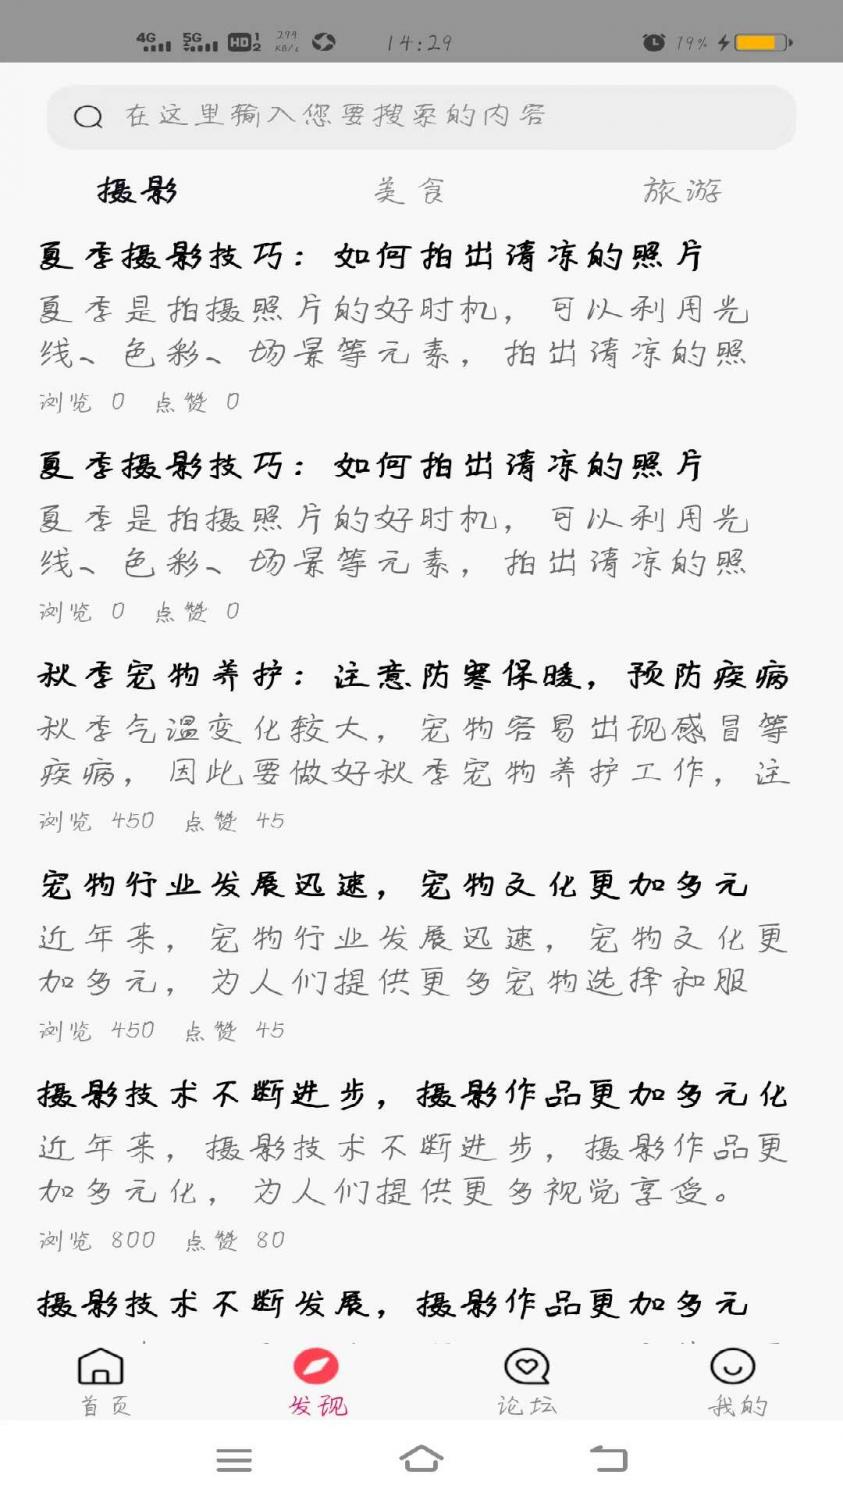 4G 5G HD 1 2 299 KB/s 14:29 79%
在这里输入您要搜索的内容
摄影 美食 旅游
夏季摄影技巧：如何拍出清凉的照片
夏季是拍摄照片的好时机，可以利用光
线、色彩、场景等元素，拍出清凉的照
浏览 0 点赞 0
夏季摄影技巧：如何拍出清凉的照片
夏季是拍摄照片的好时机，可以利用光
线、色彩、场景等元素，拍出清凉的照
浏览 0 点赞 0
秋季宠物养护：注意防寒保暖，预防疾病
秋季气温变化较大，宠物容易出现感冒等
疾病，因此要做好秋季宠物养护工作，注
浏览 450 点赞 45
宠物行业发展迅速，宠物文化更加多元
近年来，宠物行业发展迅速，宠物文化更
加多元，为人们提供更多宠物选择和服
浏览 450 点赞 45
摄影技术不断进步，摄影作品更加多元化
近年来，摄影技术不断进步，摄影作品更
加多元化，为人们提供更多视觉享受。
浏览 800 点赞 80
摄影技术不断发展，摄影作品更加多元
首页 发现 论坛 我的